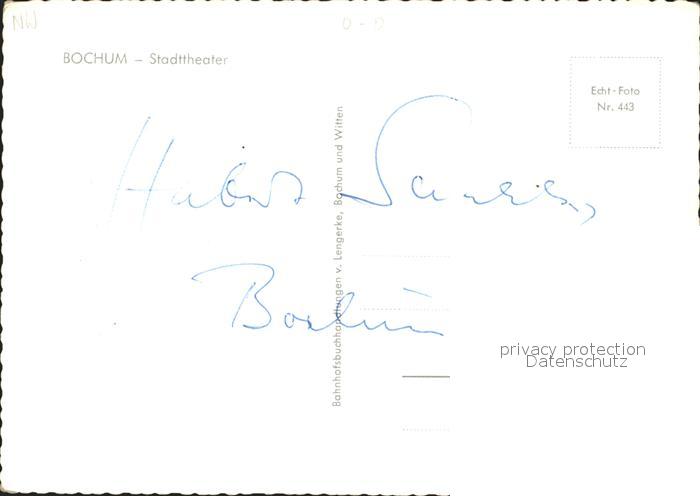 NW
O - D
BOCHUM – Stadttheater
Echt-Foto
Nr. 443
Bahnhofsbuchhandlungen v. Lengerke, Bochum und Witten
Bochum
privacy protection
Datenschutz